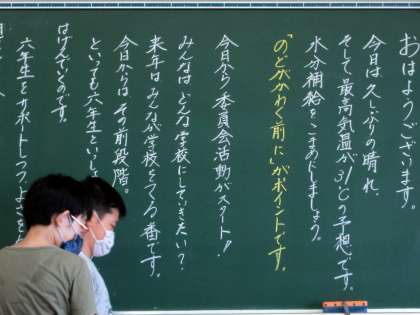 おはようございます。
今日は久しぶりの晴れ、
そして最高気温が31℃の予想です。
水分補給をこまめにしましょう。
「のどがかわく前に」がポイントです。
今日から委員会活動がスタート！
みんなは どんな学校にしていきたい？
来年は みんなが学校をつくる番です。
今日からは その前段階。
といっても六年生といし
はげんでいのです。
六年生をサポートしつつ